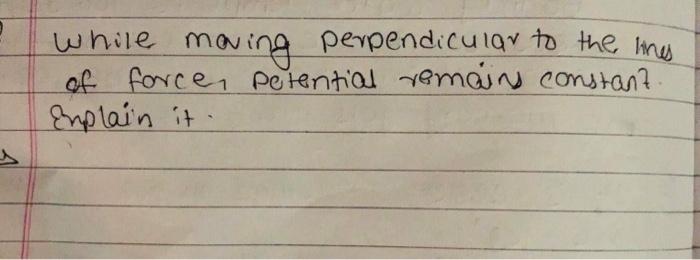 while moving perpendicular to the lines
of force, petential remains constant.
Enplain it.